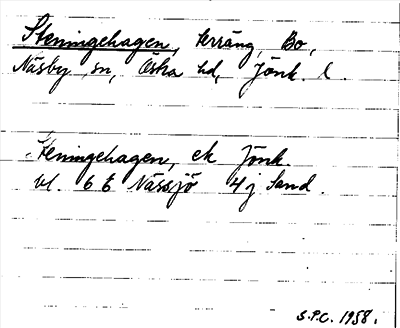 Steningehagen, terräng, Bo,
Näsby sn, Östra hd, Jönk. l.
Steningehagen, ek Jönk.
bl. 6 E Nässjö 4 j Sand.
S.P.C. 1958.